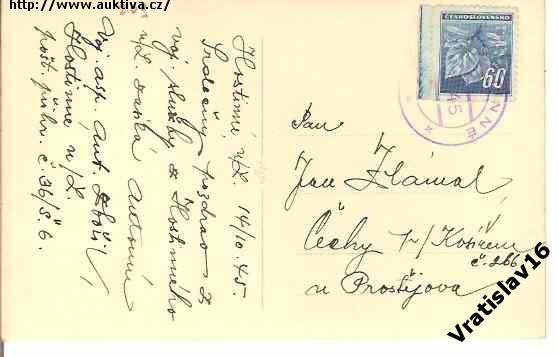 http://www.auktiva.cz/
Hostinné n/L. 14/10.45.
Srdečný pozdrav z
voj. služby z Hostinného
n/L. zasílá Antonín
Voj. asp. Ant.
Hostinné n/L
pošt. přihr. č. 36/S. 6.
ČESKOSLOVENSKO
60
NNÉ
45
Pan
Jan Zlámal
Čechy p/ Kosířem
č. 266
u Prostějova
Vratislav16